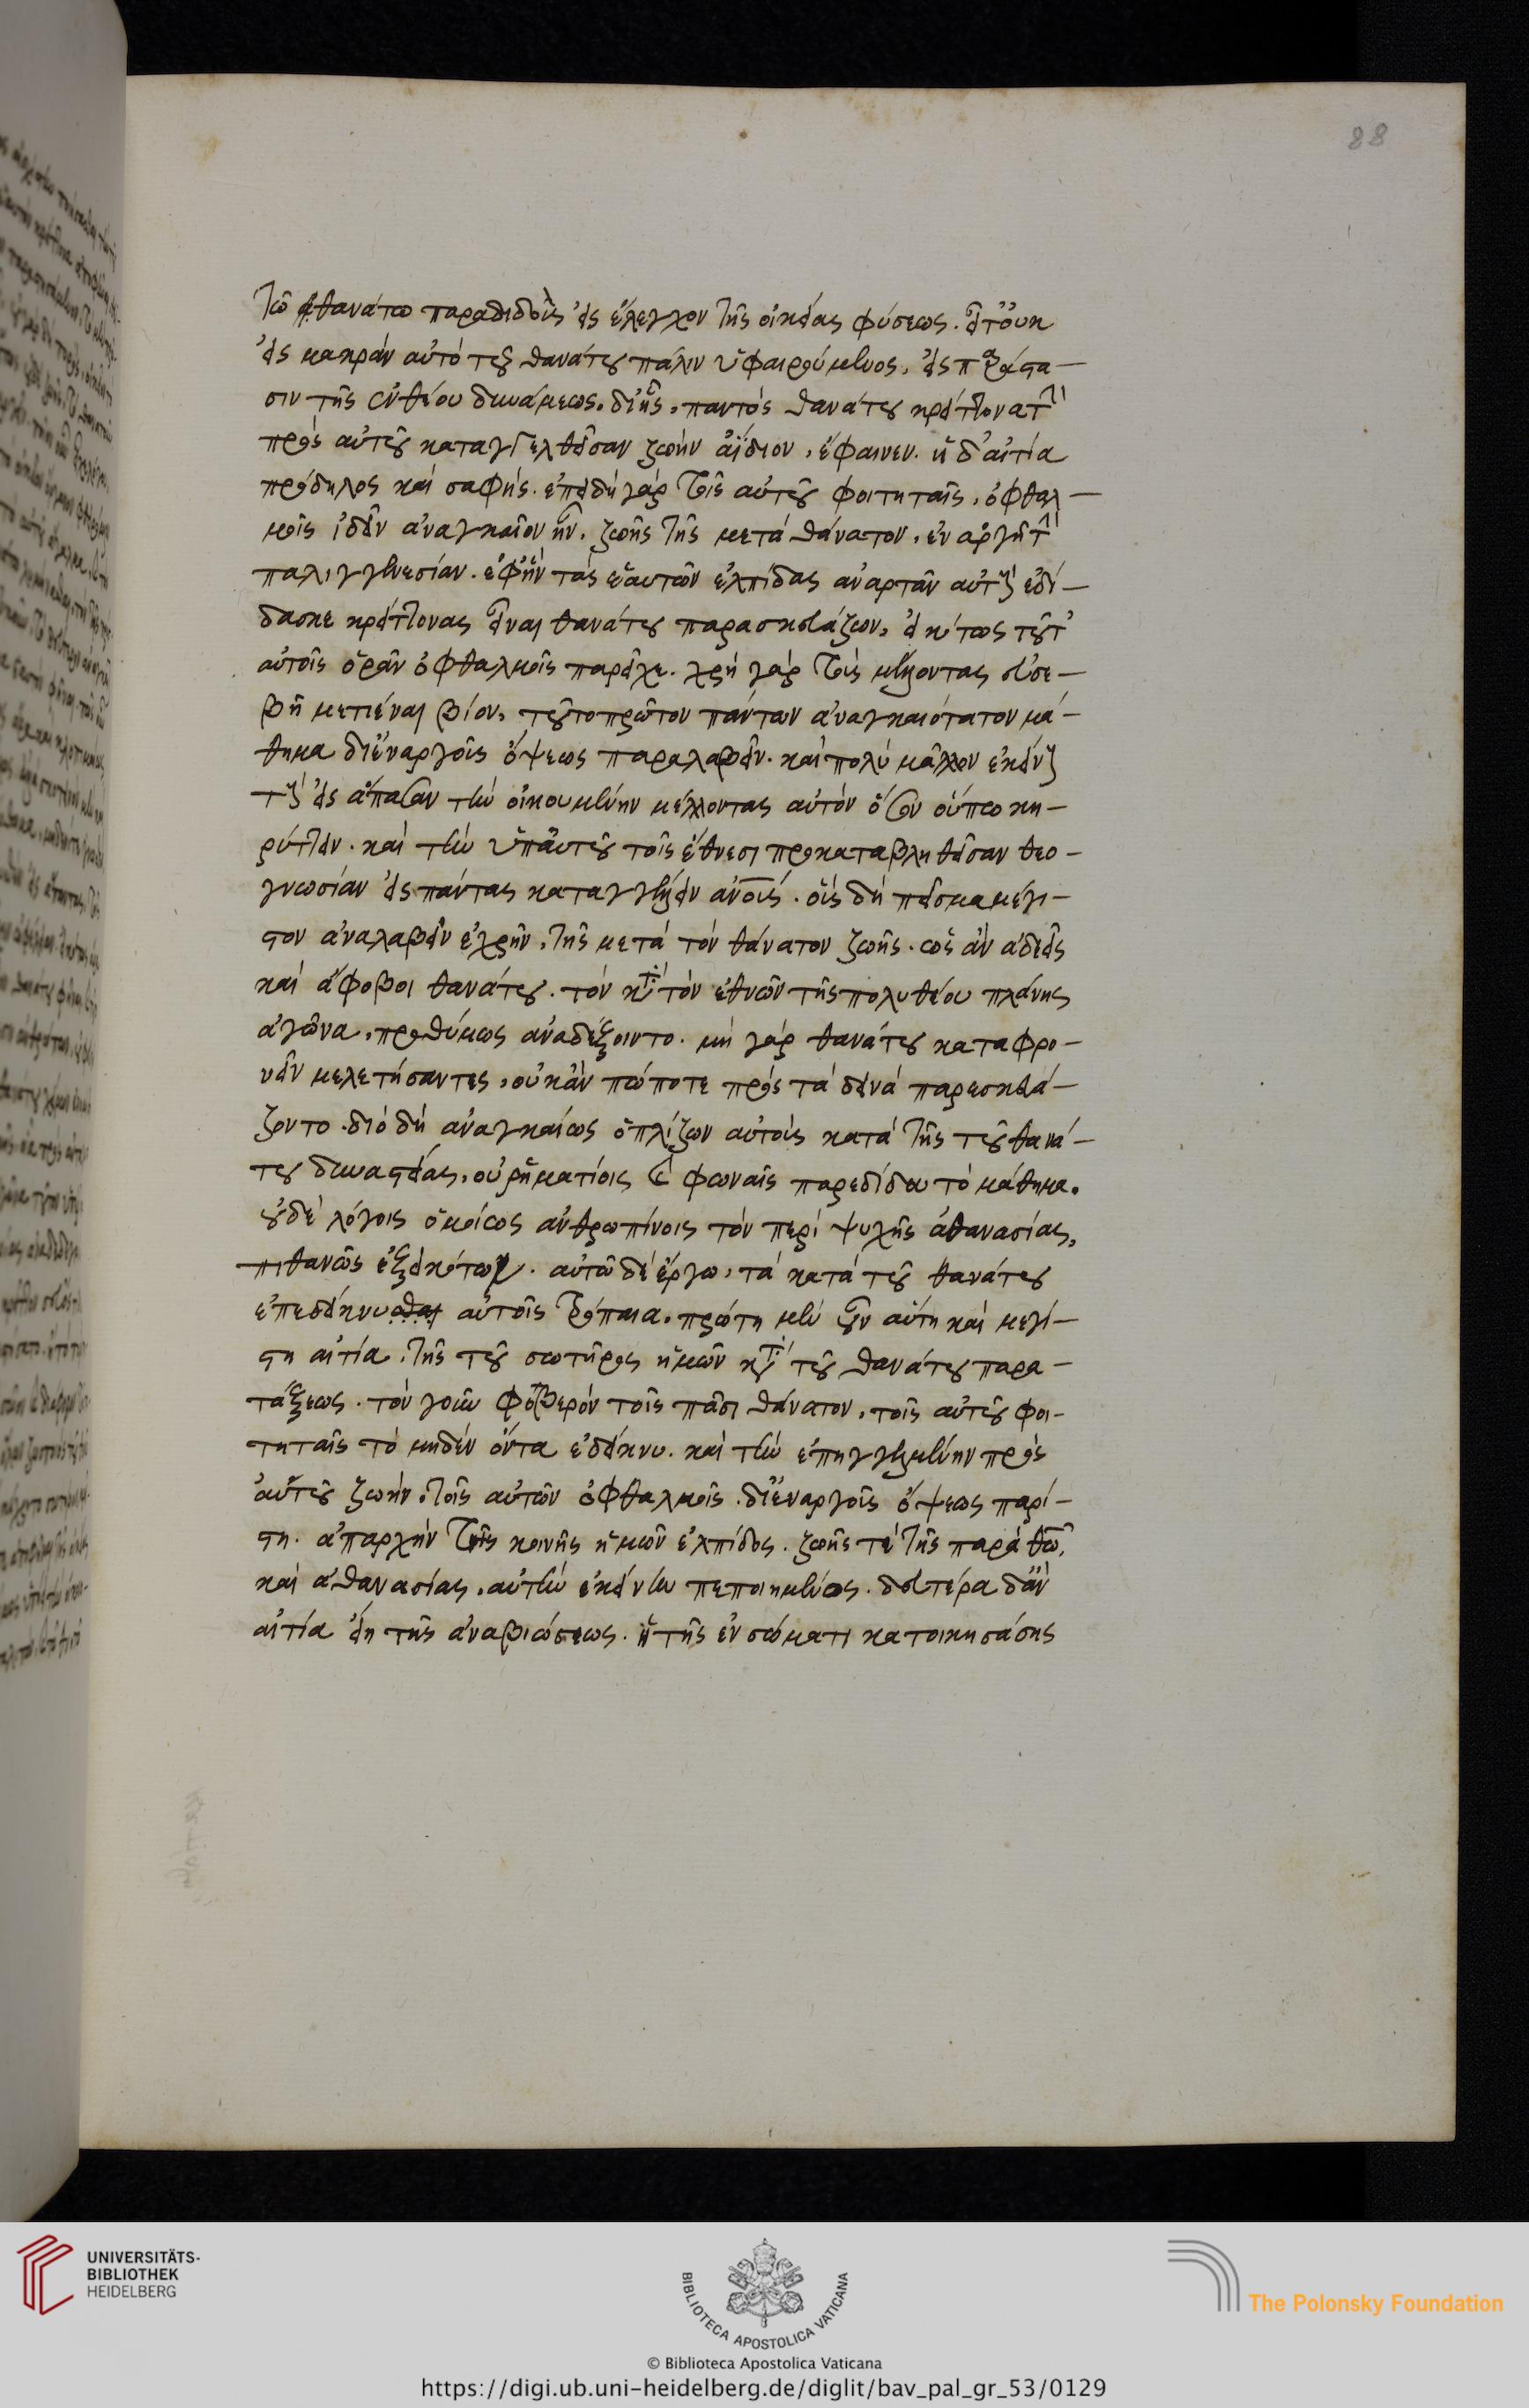 88
τῶ θανάτω παραδιδοὺς εἰς ἔλεγχον τῆς οἰκείας φύσεως. εἶτ' οὐκ
εἰς μακρὰν αὐτὸ τοῦ θανάτου πάλιν ὑφαιρούμενος, εἰς παράστα-
σιν τῆς ἐνθέου δυνάμεως. δι' ἧς, παντὸς θανάτου κρείττονα τὴν
πρὸς αὐτοῦ καταγγελθεῖσαν ζωὴν ἀΐδιον, ἔφαινεν. ἡ δ' αἰτία
πρόδηλος καὶ σαφής. ἐπειδὴ γὰρ τοῖς αὐτοῦ φοιτηταῖς, ὀφθαλ-
μοῖς ἰδεῖν ἀναγκαῖον ἦν, ζωῆς τῆς μετὰ θάνατον, ἐναργῆ τὴν
παλιγγενεσίαν. ἐφ' ἣν τὰς ἑαυτῶν ἐλπίδας ἀναρτᾶν αὐτοὺς ἐδί-
δασκε κρείττονας εἶναι θανάτου παρασκευάζων, εἰκότως τοῦτ'
αὐτοῖς ὁρᾶν ὀφθαλμοῖς παρεῖχε. χρὴ γὰρ τοὺς μέλλοντας εὐσε-
βῆ μετιέναι βίον, τοῦτο πρῶτον πάντων ἀναγκαιότατον μά-
θημα δι' ἐναργοῦς ὄψεως παραλαβεῖν. καὶ πολὺ μᾶλλον ἐκείνους
τοὺς εἰς ἅπασαν τὴν οἰκουμένην μέλλοντας αὐτὸν ὅσον οὔπω κη-
ρύττειν. καὶ τὴν ὑπ' αὐτοῦ τοῖς ἔθνεσι προκαταβληθεῖσαν θεο-
γνωσίαν εἰς πάντας καταγγέλλειν ἀνους. οὓς δὴ πεῖσμα μέγι-
στον ἀναλαβεῖν ἐχρῆν, τῆς μετὰ τὸν θάνατον ζωῆς. ὡς ἂν ἀδεεῖς
καὶ ἄφοβοι θανάτου. τὸν κατὰ τῶν ἐθνῶν τῆς πολυθέου πλάνης
ἀγῶνα, προθύμως ἀναδέξοιντο. μὴ γὰρ θανάτου καταφρο-
νεῖν μελετήσαντες, οὐκ ἂν πώποτε πρὸς τὰ δεινὰ παρεσκευά-
ζοντο. διὸ δὴ ἀναγκαίως ὁπλίζων αὐτοὺς κατὰ τῆς τοῦ θανά-
του δυναστείας, οὐ ῥηματίοις καὶ φωναῖς παρεδίδου τὸ μάθημα.
οὐδὲ λόγοις ὁμοίως ἀνθρωπίνοις τὸν περὶ ψυχῆς ἀθανασίας,
πιθανῶς ἐξ εἰκότων. αὐτῶ δὲ ἔργω, τὰ κατὰ τοῦ θανάτου
ἐπεδείκνυσθαι αὐτοῖς τρόπαια. πρώτη μὲν οὖν αὕτη καὶ μεγί-
στη αἰτία, τῆς τοῦ σωτῆρος ἡμῶν κατὰ τοῦ θανάτου παρα-
τάξεως. τὸν γοῦν φοβερὸν τοῖς πᾶσι θάνατον, τοῖς αὐτοῦ φοι-
τηταῖς τὸ μηδὲν ὄντα ἐδείκνυ. καὶ τὴν ἐπηγγελμένην πρὸς
αὐτοῦ ζωήν. τοῖς αὐτῶν ὀφθαλμοῖς. δι' ἐναργοῦς ὄψεως παρί-
στη. ἀπαρχὴν τῆς κοινῆς ἡμῶν ἐλπίδος. ζωῆς τὲ τῆς παρὰ θῶ,
καὶ ἀθανασίας, αὐτὴν ἐκείνην πεποιημένος. δευτέρα δ' ἂν
αἰτία εἴη τῆς ἀναβιώσεως. ἡ τῆς ἐν σώματι κατοικησάσης
UNIVERSITÄTS-
BIBLIOTHEK
HEIDELBERG
BIBLIOTECA APOSTOLICA VATICANA
The Polonsky Foundation
© Biblioteca Apostolica Vaticana
https://digi.ub.uni-heidelberg.de/diglit/bav_pal_gr_53/0129